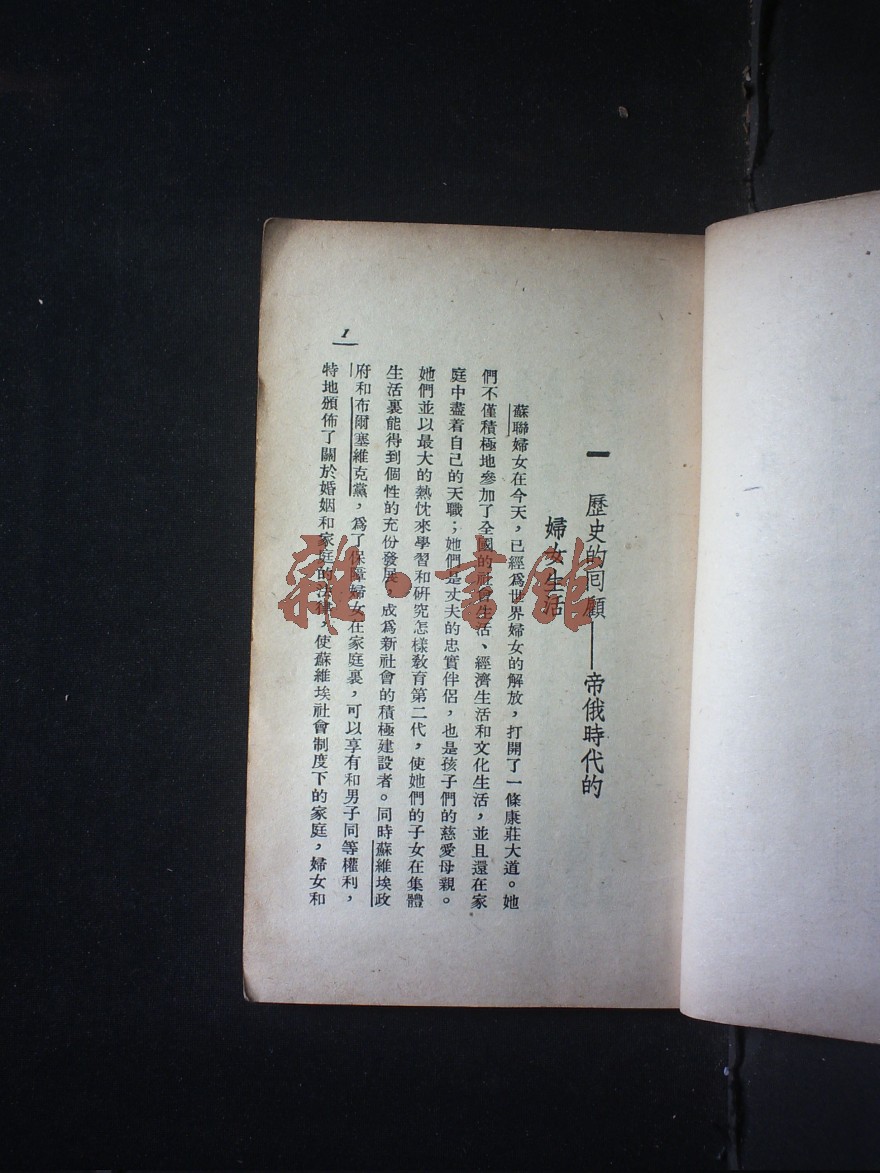 一 歷史的回顧——帝俄時代的
婦女生活
蘇聯婦女在今天，已經爲世界婦女的解放，打開了一條康莊大道。她
們不僅積極地參加了全國的社會生活、經濟生活和文化生活，並且還在家
庭中盡着自己的天職；她們是丈夫的忠實伴侶，也是孩子們的慈愛母親。
她們並以最大的熱忱來學習和研究怎樣敎育第二代，使她們的子女在集體
生活裏能得到個性的充份發展，成爲新社會的積極建設者。同時蘇維埃政
府和布爾塞維克黨，爲了保障婦女在家庭裏，可以享有和男子同等權利，
特地頒佈了關於婚姻和家庭的法律，使蘇維埃社會制度下的家庭，婦女和
1
雜·書館